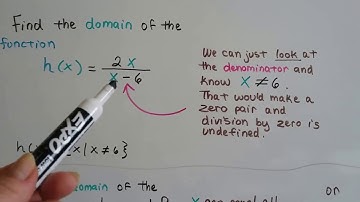 Find the domain of the
function
h(x) = 2x / x - 6
We can just look at
the denominator and
know x ≠ 6.
That would make a
zero pair and
division by zero is
undefined.
EXPO
h( x | x ≠ 6 }
domain of the
or